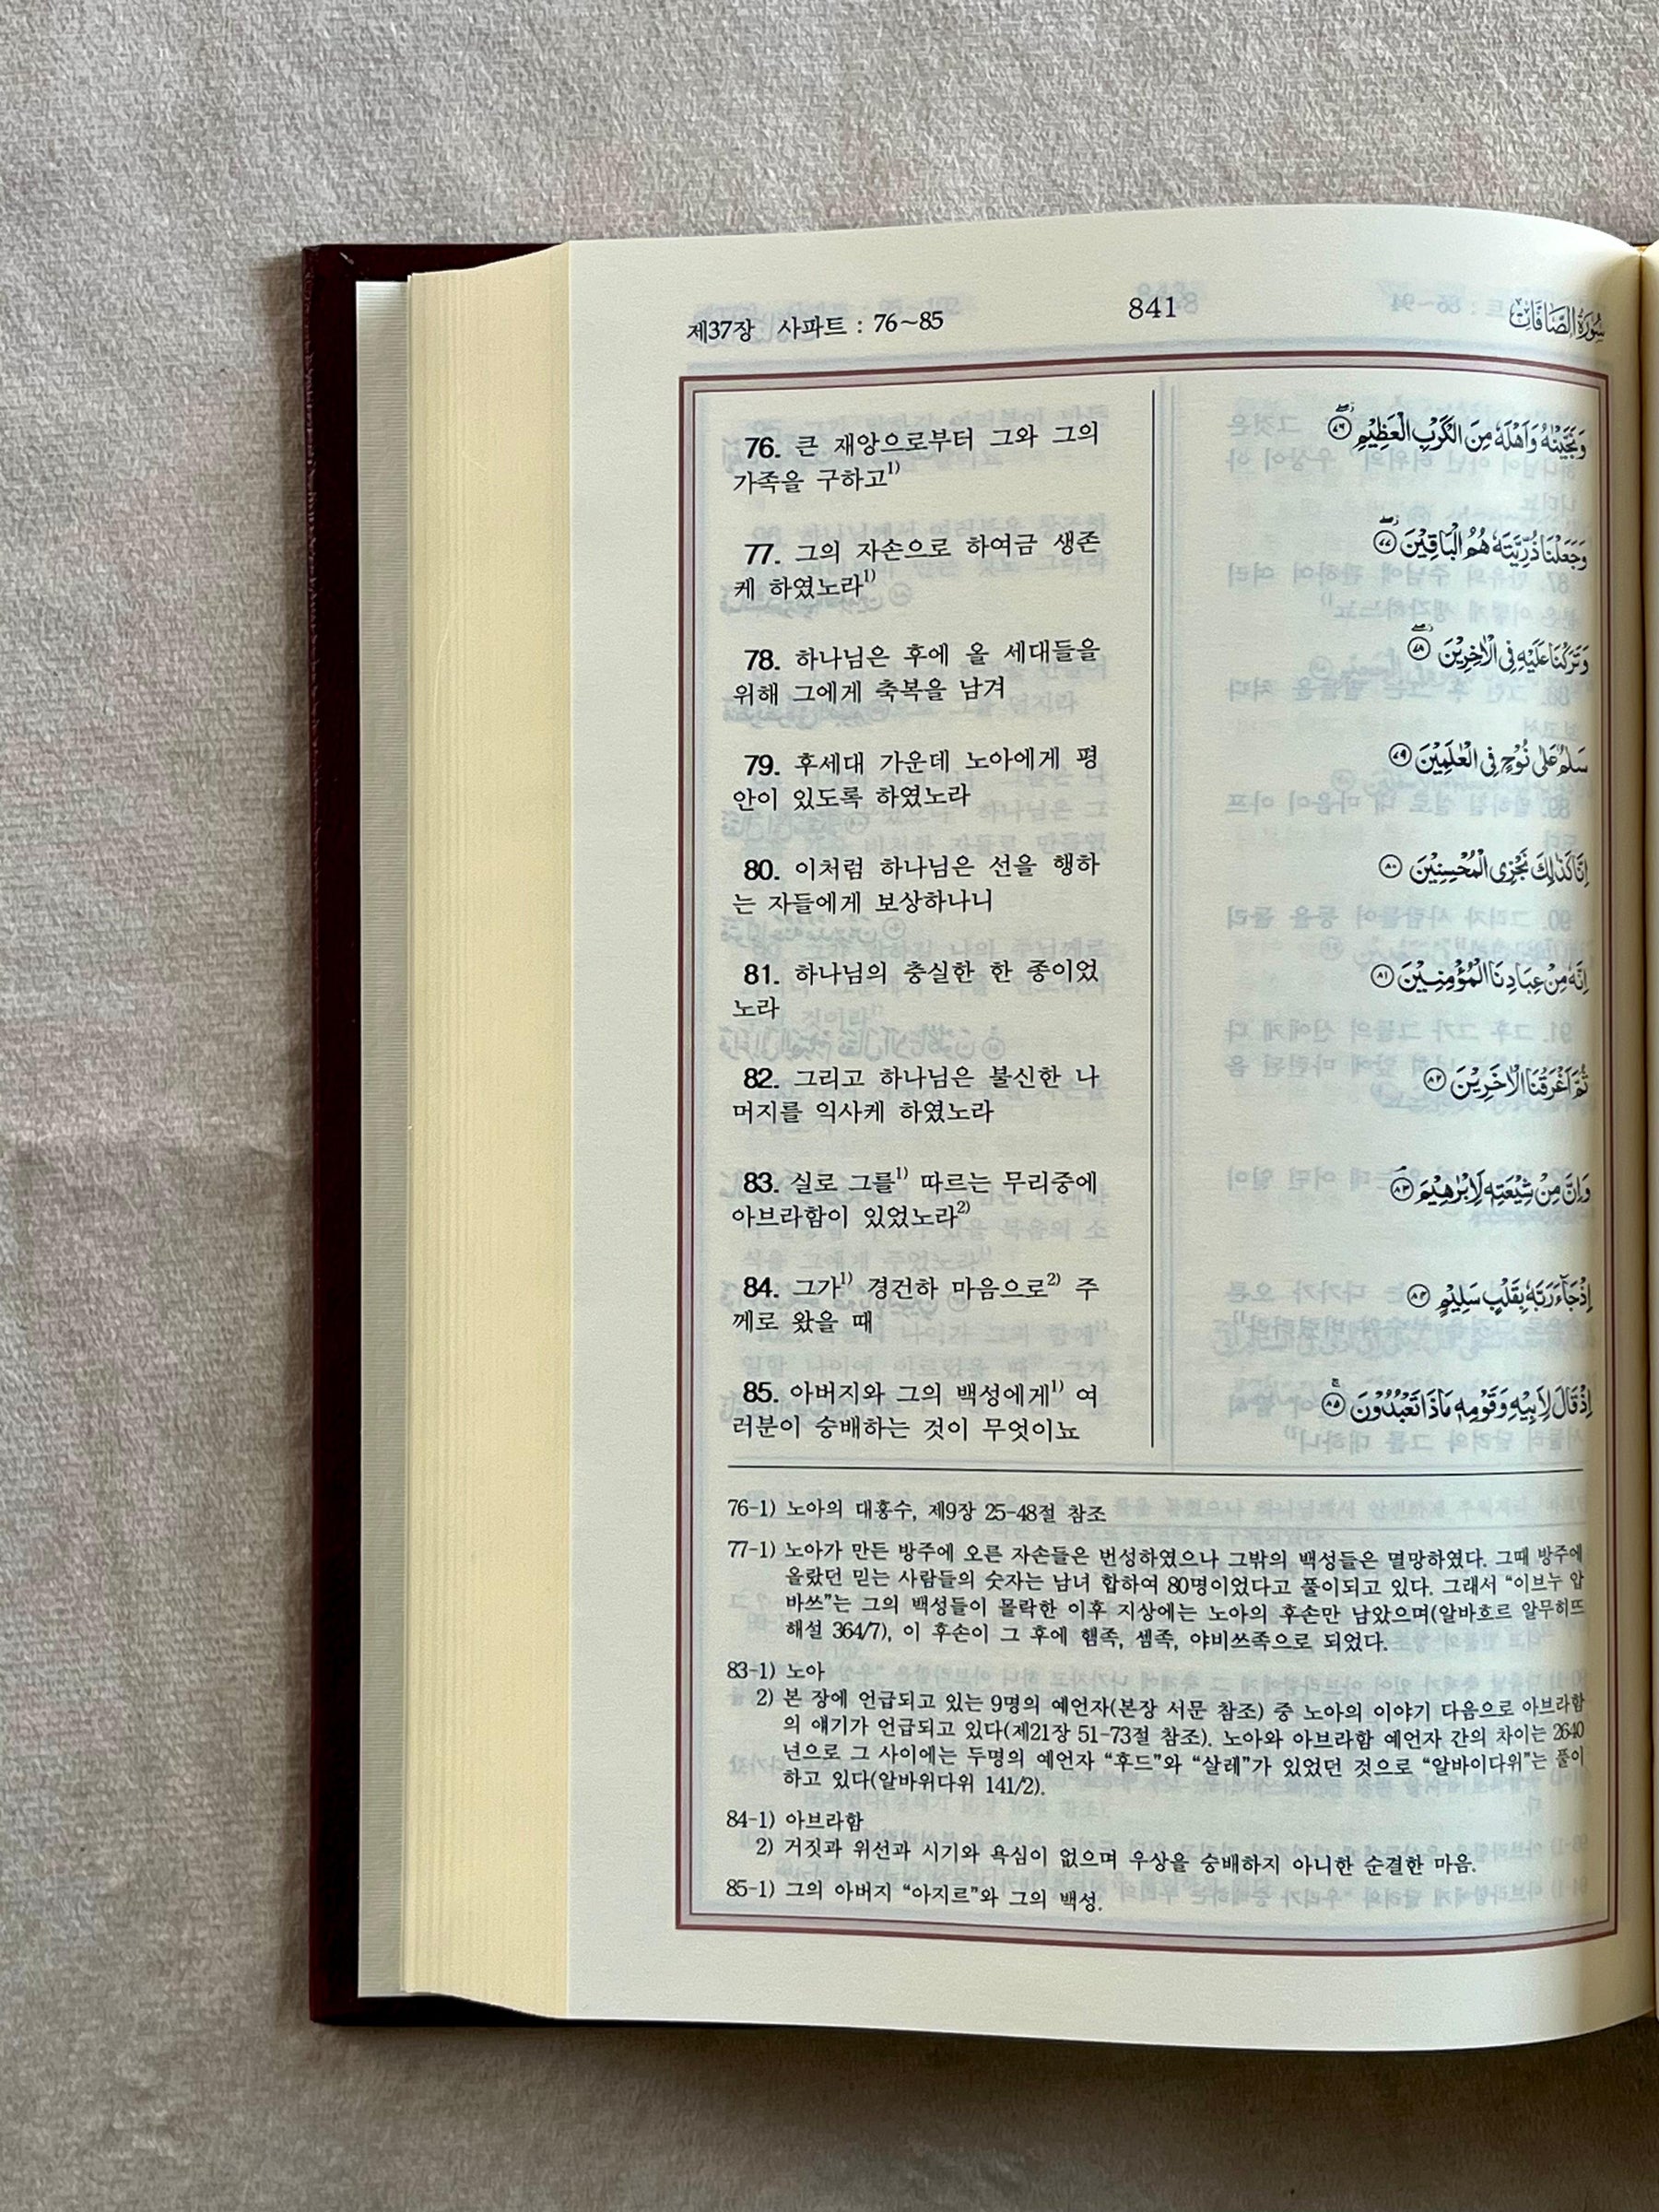 제37장 사파트 : 76~85
841
سُورَةُ الصَّافَّات
76. 큰 재앙으로부터 그와 그의
가족을 구하고1)
وَنَجَّيْنٰهُ وَاَهْلَهٗ مِنَ الْكَرْبِ الْعَظِيْمِ ۖ ﴿٧٦﴾
77. 그의 자손으로 하여금 생존
케 하였노라1)
وَجَعَلْنَا ذُرِّيَّتَهٗ هُمُ الْبَاقِيْنَ ۖ ﴿٧٧﴾
78. 하나님은 후에 올 세대들을
위해 그에게 축복을 남겨
وَتَرَكْنَا عَلَيْهِ فِى الْاٰخِرِيْنَ ۖ ﴿٧٨﴾
79. 후세대 가운데 노아에게 평
안이 있도록 하였노라
سَلٰمٌ عَلٰى نُوْحٍ فِى الْعٰلَمِيْنَ ﴿٧٩﴾
80. 이처럼 하나님은 선을 행하
는 자들에게 보상하나니
اِنَّا كَذٰلِكَ نَجْزِى الْمُحْسِنِيْنَ ﴿٨٠﴾
81. 하나님의 충실한 한 종이었
노라
اِنَّهٗ مِنْ عِبَادِنَا الْمُؤْمِنِيْنَ ﴿٨١﴾
82. 그리고 하나님은 불신한 나
머지를 익사케 하였노라
ثُمَّ اَغْرَقْنَا الْاٰخَرِيْنَ ﴿٨٢﴾
83. 실로 그를1) 따르는 무리중에
아브라함이 있었노라2)
وَاِنَّ مِنْ شِيْعَتِهٖ لَاِبْرٰهِيْمَ ۘ ﴿٨٣﴾
84. 그가1) 경건하 마음으로2) 주
께로 왔을 때
اِذْ جَآءَ رَبَّهٗ بِقَلْبٍ سَلِيْمٍ ﴿٨٤﴾
85. 아버지와 그의 백성에게1) 여
러분이 숭배하는 것이 무엇이뇨
اِذْ قَالَ لِاَبِيْهِ وَقَوْمِهٖ مَاذَا تَعْبُدُوْنَ ۚ ﴿٨٥﴾
76-1) 노아의 대홍수, 제9장 25-48절 참조
77-1) 노아가 만든 방주에 오른 자손들은 번성하였으나 그밖의 백성들은 멸망하였다. 그때 방주에
올랐던 믿는 사람들의 숫자는 남녀 합하여 80명이었다고 풀이되고 있다. 그래서 “이브누 압
바쓰”는 그의 백성들이 몰락한 이후 지상에는 노아의 후손만 남았으며(알바흐르 알무히뜨
해설 364/7), 이 후손이 그 후에 햄족, 셈족, 야비쓰족으로 되었다.
83-1) 노아
2) 본 장에 언급되고 있는 9명의 예언자(본장 서문 참조) 중 노아의 이야기 다음으로 아브라함
의 얘기가 언급되고 있다(제21장 51-73절 참조). 노아와 아브라함 예언자 간의 차이는 2640
년으로 그 사이에는 두명의 예언자 “후드”와 “살레”가 있었던 것으로 “알바이다위”는 풀이
하고 있다(알바위다위 141/2).
84-1) 아브라함
2) 거짓과 위선과 시기와 욕심이 없으며 우상을 숭배하지 아니한 순결한 마음.
85-1) 그의 아버지 “아지르”와 그의 백성.